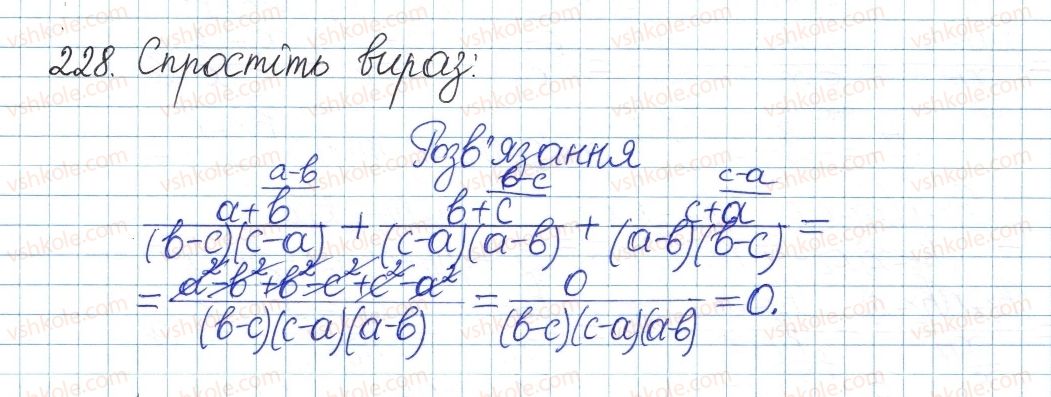 228. Спростіть вираз:
Розв'язання
a-b b-c c-a
a+b b+c c+a
(b-c)(c-a) + (c-a)(a-b) + (a-b)(b-c) =
= a²-b²+b²-c²+c²-a² / (b-c)(c-a)(a-b) = 0 / (b-c)(c-a)(a-b) = 0.